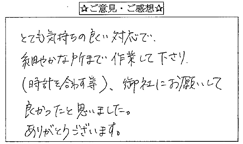 ☆ご意見・ご感想☆
とても気持ちの良い対応で、
細やかな所まで作業して下さり
(時計を合わす等)、御社にお願いして
良かったと思いました。
ありがとうございます。